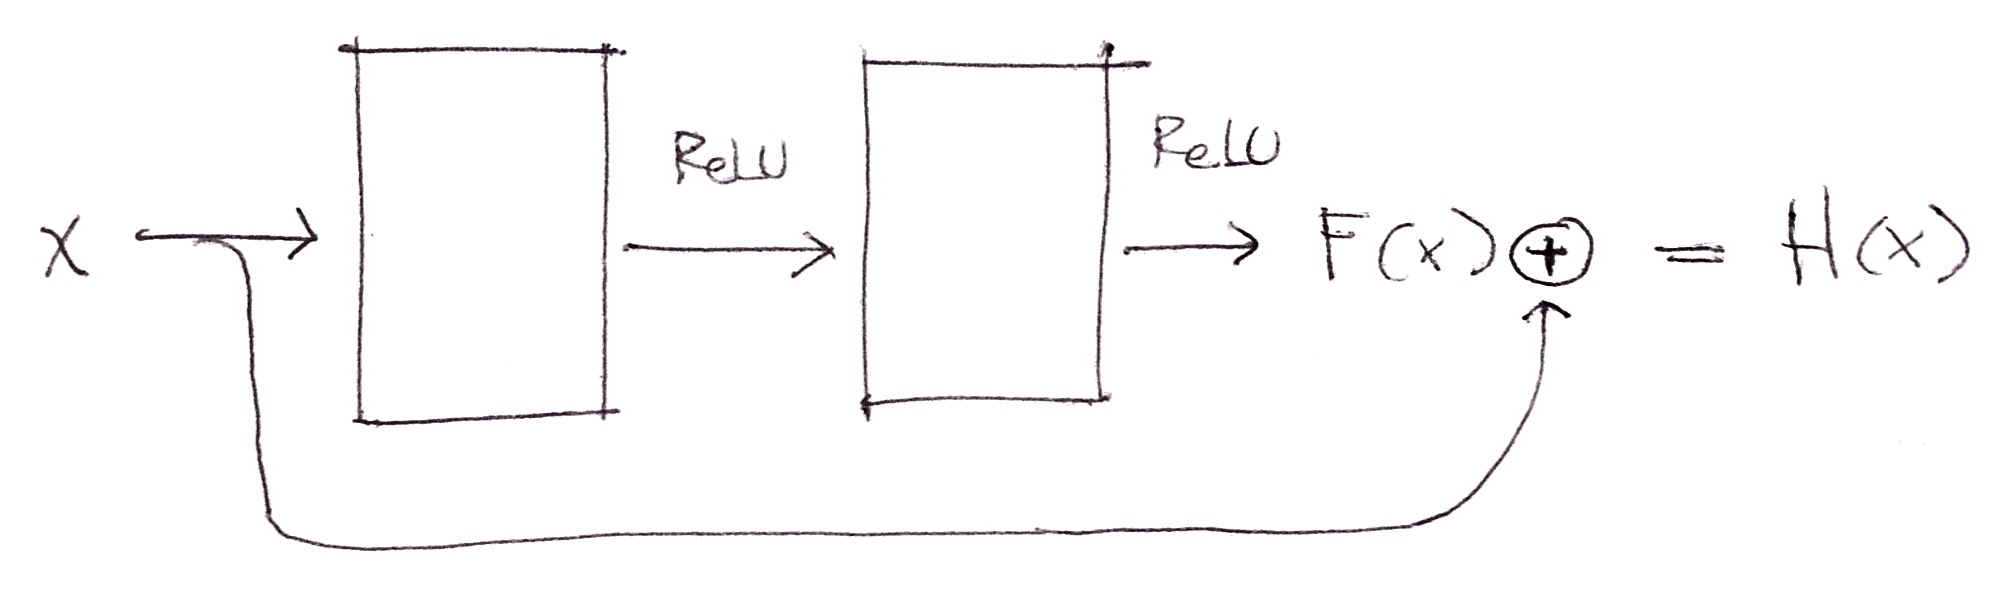 ReLU
ReLU
x
F(x) ⊕ = H(x)